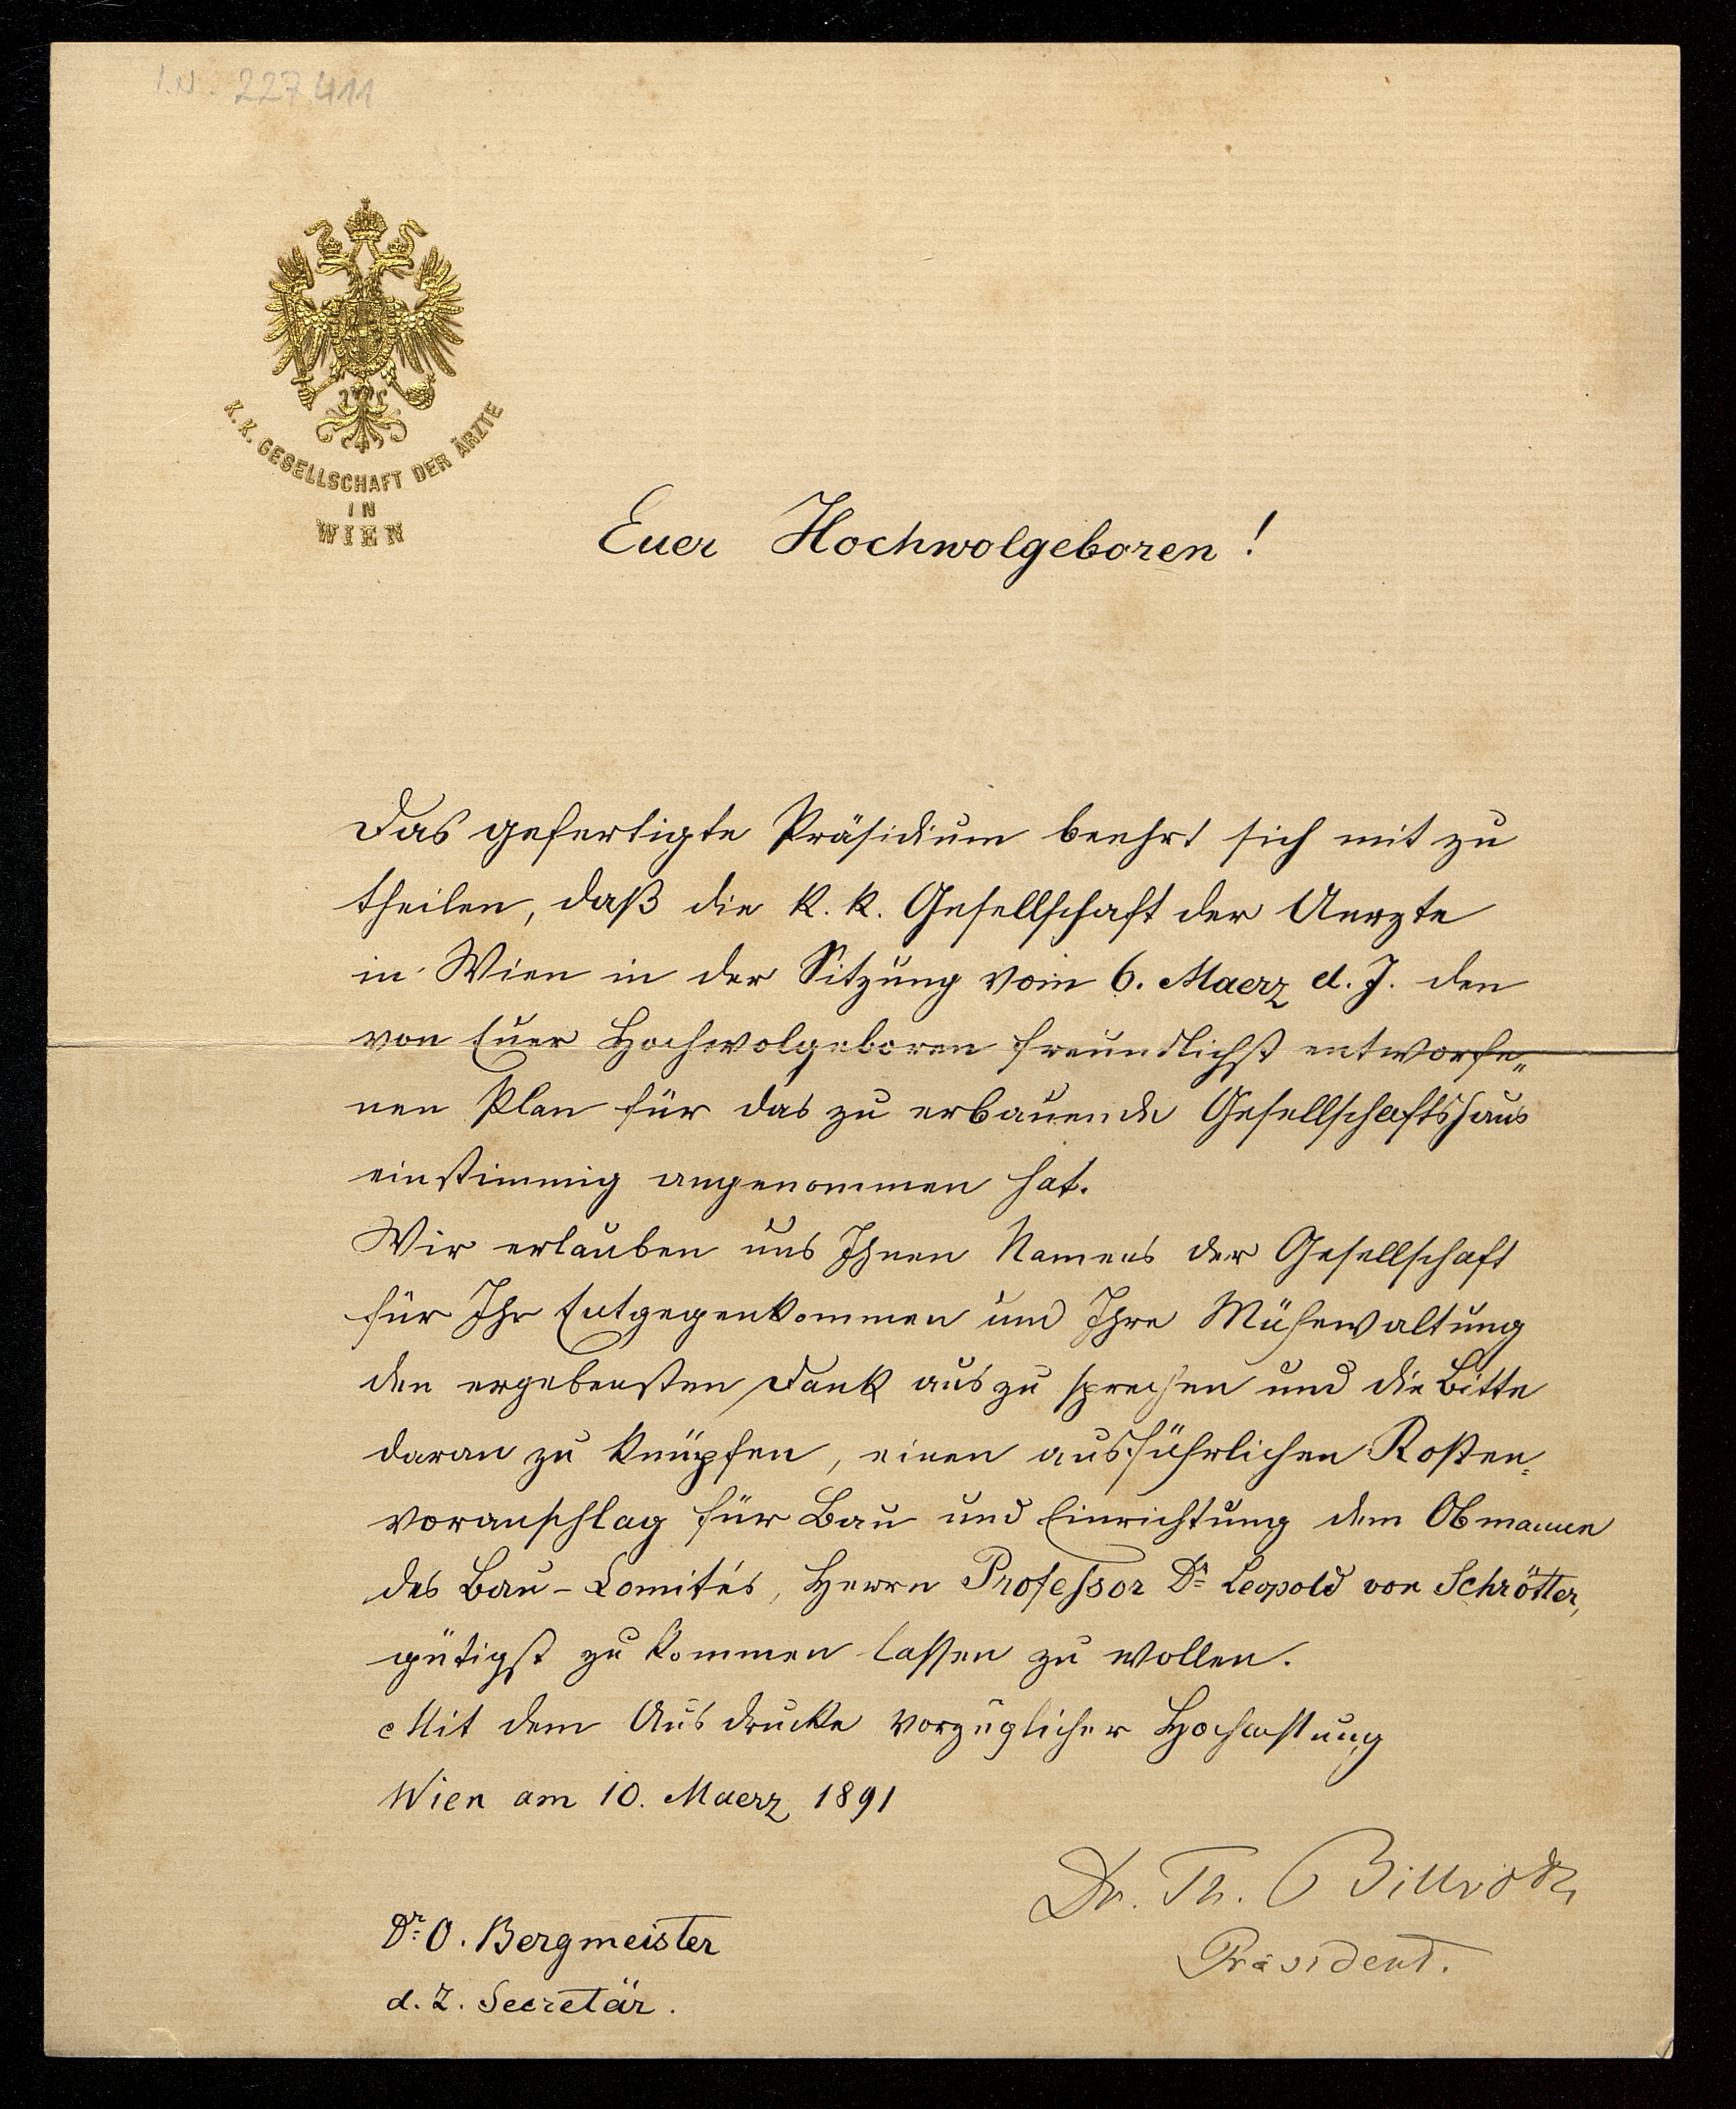 I.N. 227411
K.K. GESELLSCHAFT DER ÄRZTE
IN
WIEN
Euer Hochwolgeboren!
Das gefertigte Präsidium beehrt sich mit zu
theilen, daß die k. k. Gesellschaft der Aerzte
in Wien in der Sitzung vom 6. Maerz d. J. den
von Euer Hochwolgeboren freundlichst entworfe„
nen Plan für das zu erbauende Gesellschaftshaus
einstimmig angenommen hat.
Wir erlauben uns Ihnen Namens der Gesellschaft
für Ihr Entgegenkommen und Ihre Mühewaltung
den ergebensten Dank aus zu sprechen und die Bitte
daran zu knüpfen, einen ausführlichen Kosten=
voranschlag für Bau und Einrichtung dem Obmanne
des Bau-Comités, Herrn Professor Dr Leopold von Schrötter,
gütigst zu kommen lassen zu wollen.
Mit dem Ausdrucke vorzüglicher Hochachtung
Wien am 10. Maerz 1891
Dr. Th. Billroth
Präsident.
Dr O. Bergmeister
d. Z. Secretär.